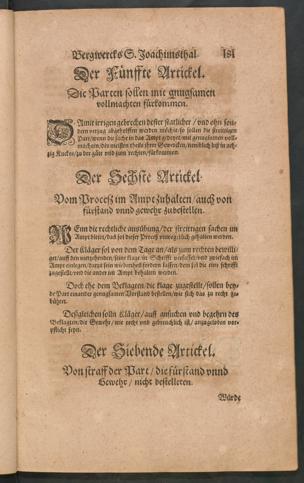 Bergwercks S. Joachimsthal
Der Fünffte Artickel.
Die Parten sollen mit gnugsamen
vollmachten fürkommen.
DAmit irrigen gebrechen desser statlicher / und ohn son-
dern verzug abgeholffen werden möchte / so sollen die streitigen
Part / wenn die sache in das Ampt gehöret mit gnugsamen vol-
machten / des meisten theils ihrer Gewercken / nemlich biß in acht-
zig Kuckes / zu der güte und zum rechten / fürkommen.
Der Sechste Artickel
Vom Proceß im Ampt zuhalten / auch von
fürstand vnnd gewehr zubestellen.
WEnn die rechtliche ausübung / der streittigen sachen im
Ampt bleiben / das sol dieser Proceß vnnachleßlich gehalten werden.
Der Kläger sol von dem Tage an / als zum rechten bewilli-
get / auff den
seine klage in Schriffte
vnd zwiefach im
Ampt einlegen /
zugestelt / vnd die ander im Ampt behalten werden.
Doch ehe dem Beklagten / die klage zugestellt / sollen bey-
de Part einander gnugsamen Vorstand bestellen / wie sich das zu recht ge-
bühret.
Desgleichen solln Kläger / auff ansuchen vnd begehrn des
Beklagten / die Gewehr / wie recht vnd gebreuchlich ist / anzugeloben vor-
pflicht seyn.
Der Siebende Artickel.
Von straff der Part / die fürstand vnnd
Gewehr / nicht bestelleten.
Würde